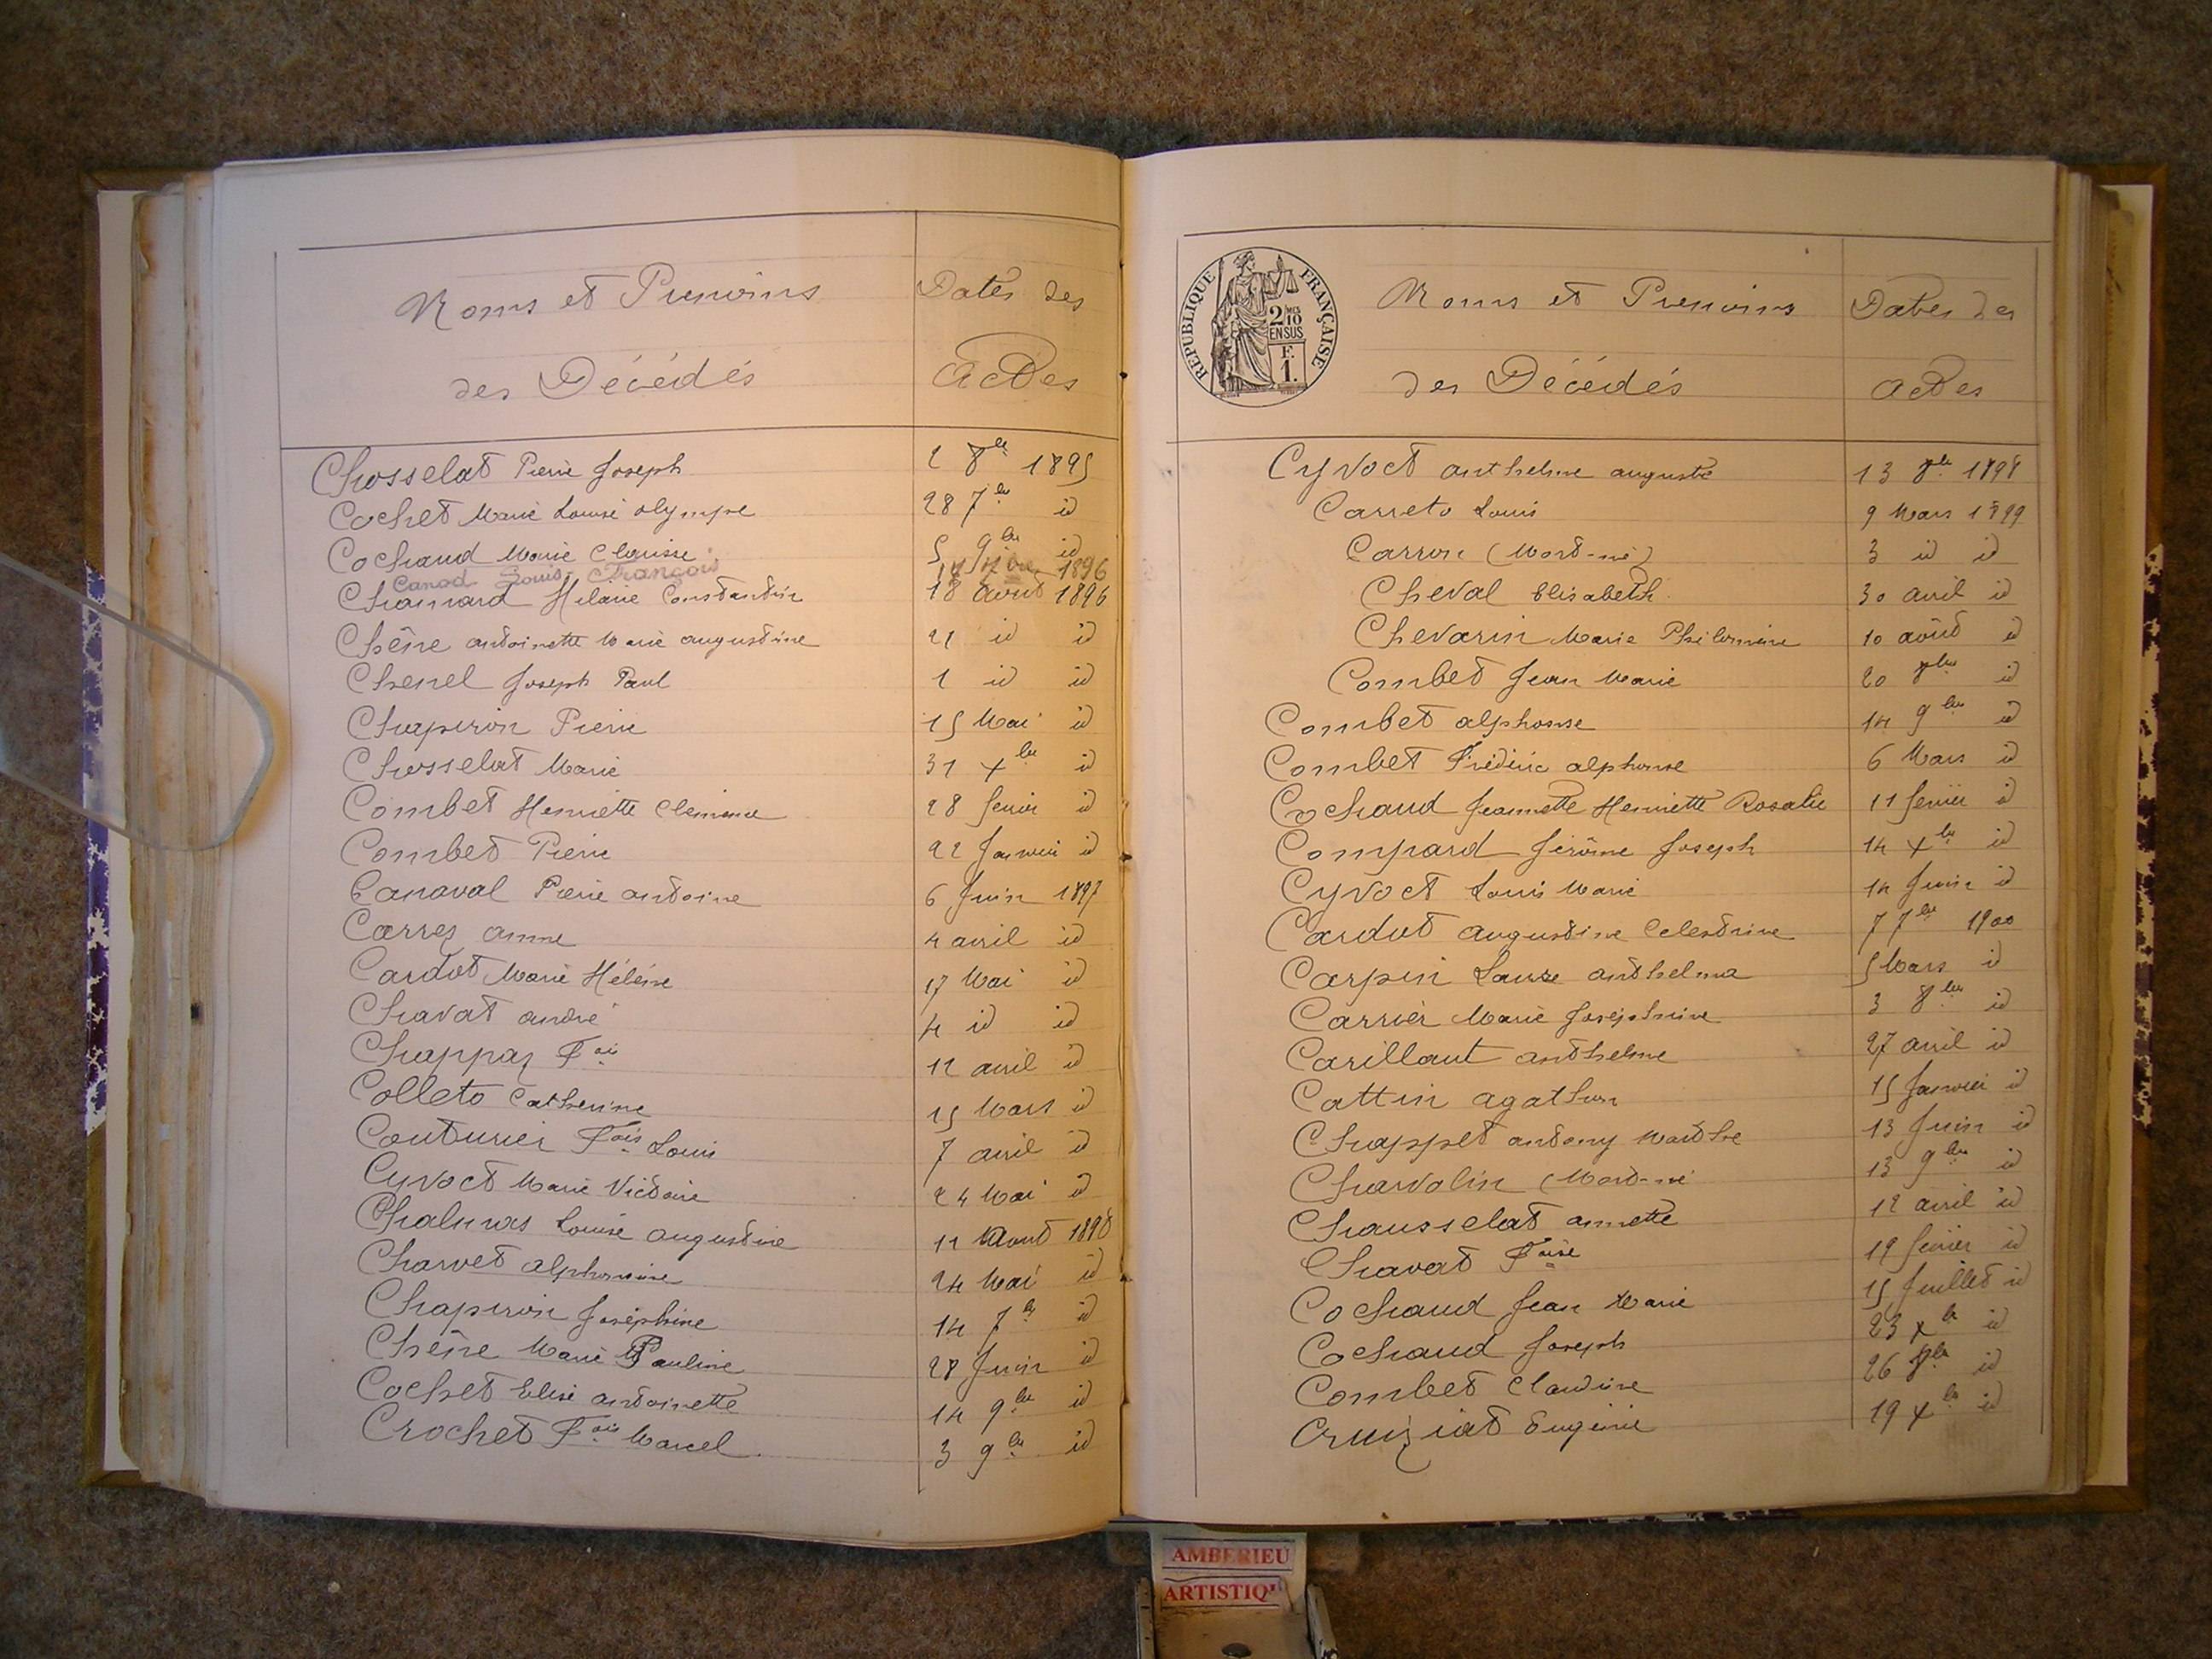 Noms et Prenoms Dates des
des Décédés Actes
Chosselat Pierre Joseph 2 8bre 1895
Cochet Marie Louise Olympe 28 7bre id
Cochaud Marie Clarisse 5 9bre id
Canod Louis François 1896
Chamard Hilaire Constantin 18 Aout 1896
Chêne Antoinette Marie Augustine 21 id id
Chenel Joseph Paul 1 id id
Chapiron Pierre 15 Mai id
Chosselat Marie 31 Xbre id
Combet Henriette Clemence 28 fevrier id
Combet Pierre 22 Janvier id
Canaval Pierre Antoine 6 Juin 1897
Carrez Anne 4 avril id
Cardot Marie Hélène 17 Mai id
Chavat André 4 id id
Chappaz Fois 12 avril id
Colleto Catherine 15 Mars id
Couturier Fois Louis 7 avril id
Cyvoct Marie Victoire 24 Mai id
Louise Augustine 11 Aout 1898
Charvet Alphonsine 24 Mai id
Chapiron Joséphine 14 7bre id
Chêne Marie Pauline 28 Juin id
Cochet Elise Antoinette 14 9bre id
Crochet Fois Marcel 3 9bre id
REPUBLIQUE FRANÇAISE
2 MES 10 EN SUS
F. 1.
Noms et Prenoms Dates des
des Décédés Actes
Cyvoct Anthelme Auguste 13 8bre 1898
Carreto Louis 9 Mars 1899
Carron (Mort-né) 3 id id
Cheval Elisabeth 30 avril id
Chevarin Marie Philomène 10 août id
Combet Jean Marie 20 id
Combet Alphonse 14 9bre id
Combet Frédéric Alphonse 6 Mars id
Cochaud Jeannette Henriette Rosalie 11 fevrier id
Compard Jérôme Joseph 14 Xbre id
Cyvoct Louis Marie 14 Juin id
Cardot Augustine Celestine 7 7bre 1900
Carpin Laure Anthelma 5 Mars id
Carrier Marie Joséphine 3 8bre id
Carillaut Anthelme 27 avril id
Cattin Agathon 15 Janvier id
Chappet Antony Marthe 13 Juin id
Charvolin (Mort-né 13 9bre id
Chausselat Annette 12 avril id
Chavat Foise 19 fevrier id
Cochaud Jean Marie 15 Juillet id
Cochaud Joseph 23 Xbre id
Combet Claudine 26 id
Cruiziat Eugénie 19 Xbre id
AMBERIEU
ARTISTIQU